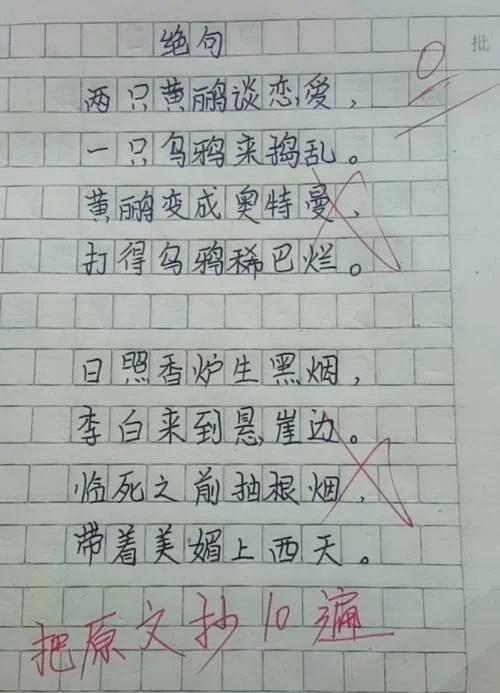 绝句
0
批
两只黄鹂谈恋爱,
一只乌鸦来捣乱。
黄鹂变成奥特曼,
打得乌鸦稀巴烂。
日照香炉生黑烟,
李白来到悬崖边。
临死之前抽根烟,
带着美媚上西天。
把原文抄10遍